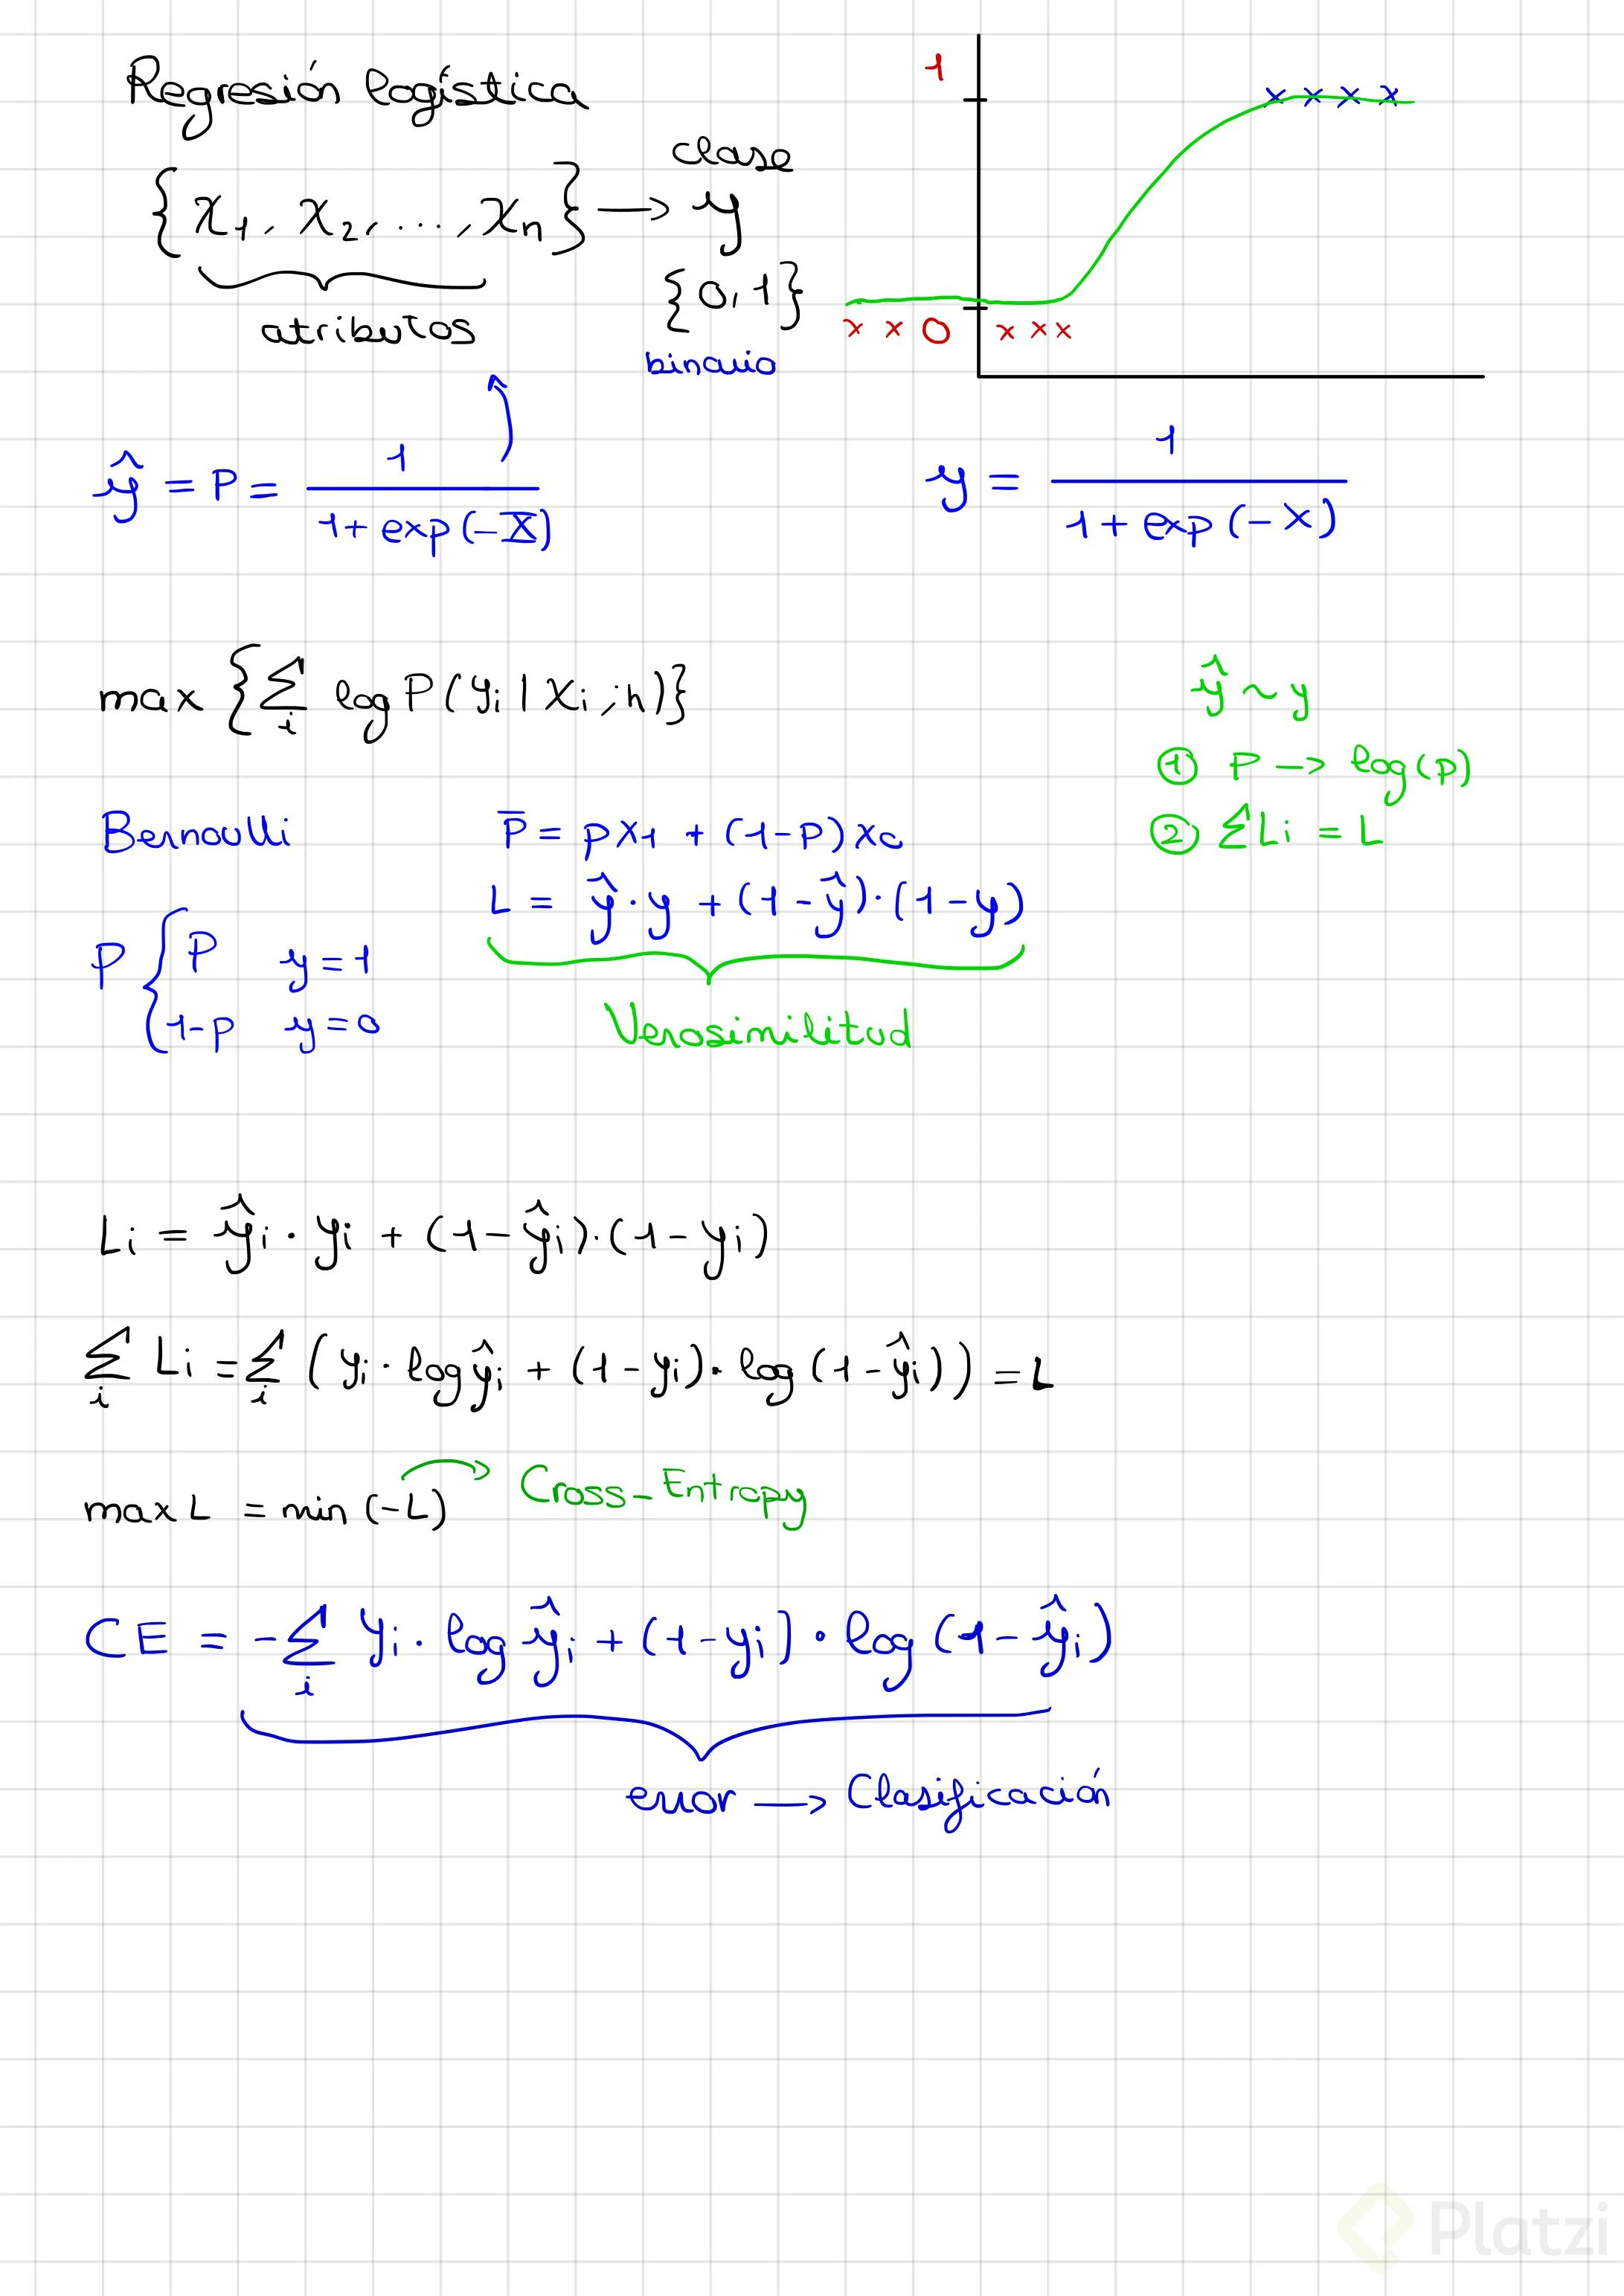 Regresión logística
1
x x x x
clase
{x₁, x₂, ..., xₙ} → y
atributos
{0,1}
binario
x x 0 x x x
ŷ = P = 1 / (1 + exp(-X))
y = 1 / (1 + exp(-X))
max {∑ᵢ log P(yᵢ | xᵢ, h)}
ŷ ~ y
① P → log(p)
② ∑Li = L
Bernoulli
P̄ = p x₁ + (1-p) x₀
L = ŷ · y + (1-ŷ) · (1-y)
Verosimilitud
P { P y=1
1-p y=0
Li = ŷi · yi + (1-ŷi) · (1-yi)
∑ᵢ Li = ∑ᵢ (yi · log ŷi + (1-yi) · log (1-ŷi)) = L
max L = min (-L) → Cross-Entropy
CE = -∑ᵢ yi · log ŷi + (1-yi) · log (1-ŷi)
error → Clasificación
Platzi